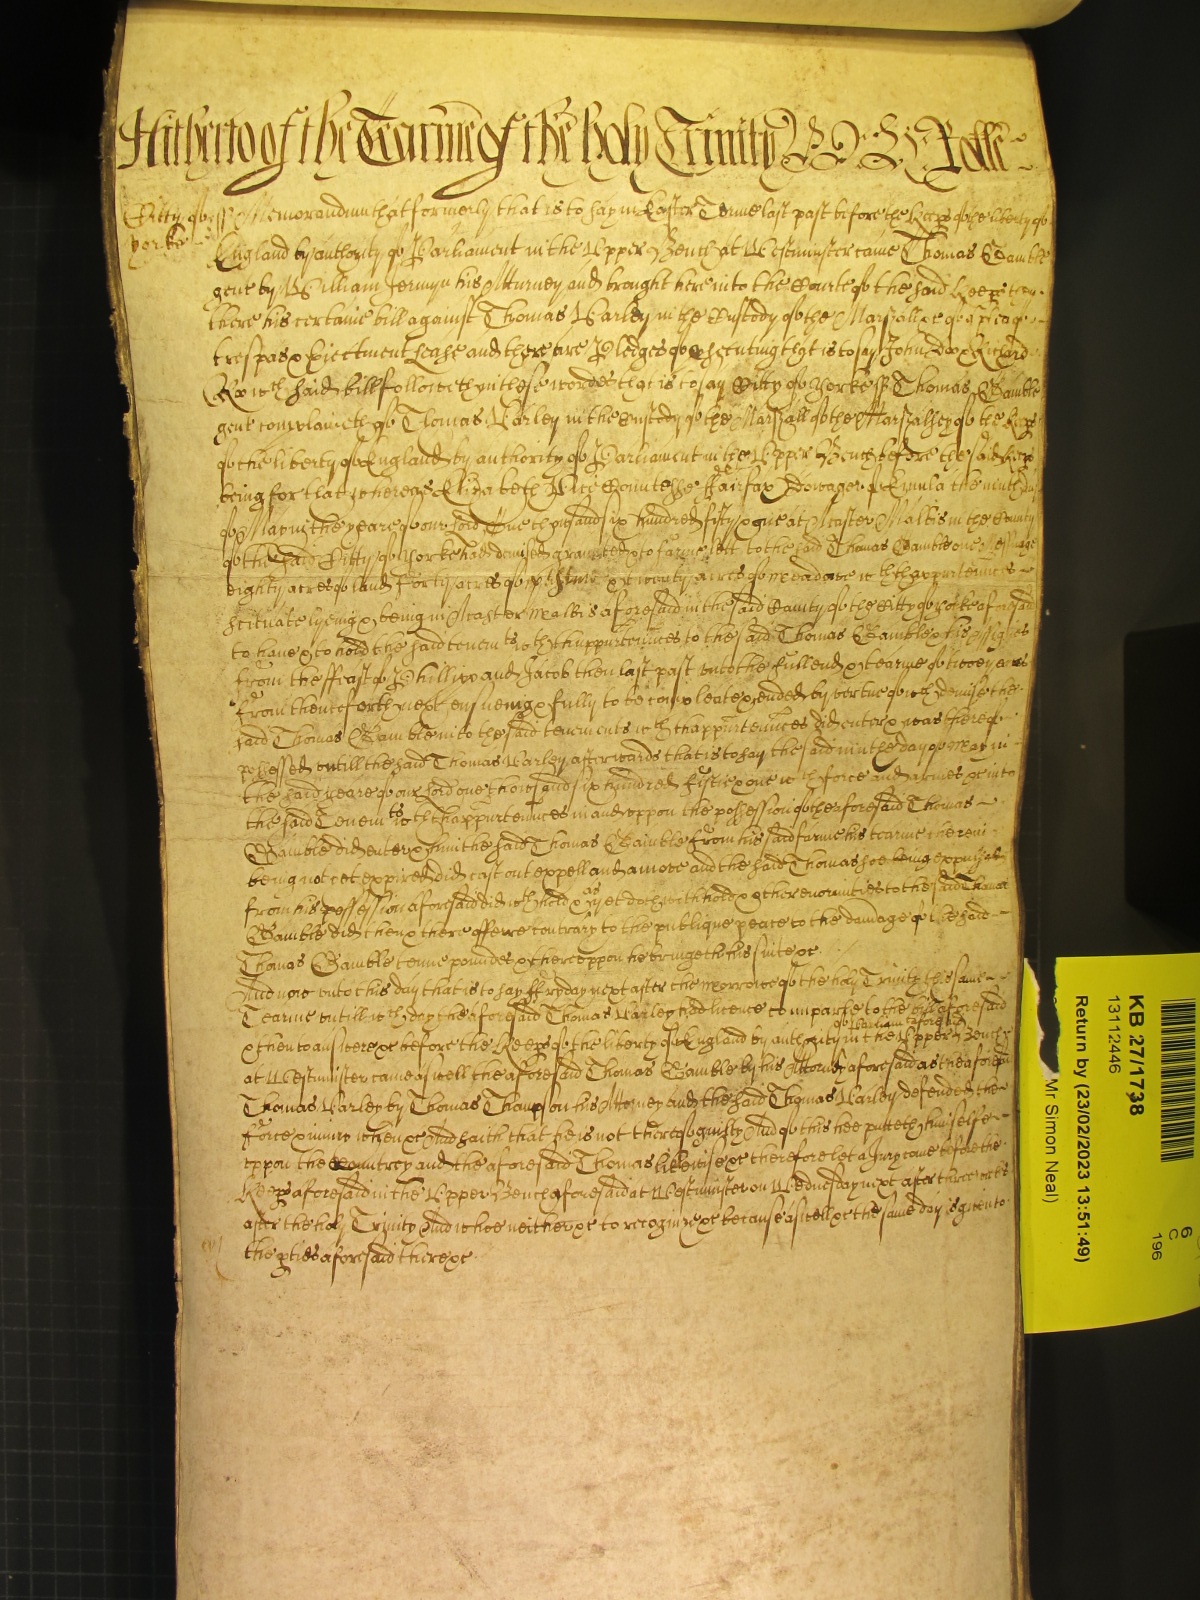 Hitherto of the Tearme of the holy Trinity Rolle
Citty of ss Memorandum that formerly that is to say in Easter Terme last past before the Keeps of the liberty of
yorke England by authority of Parliament in the Upper Bench at Westminster came Thomas Gamble
gent by William Jermyn his Atturney and brought here into the Courte of the said Keeps then
there his certaine bill against Thomas Varley in the Custody of the Marshall &c of a plea of
trespas & Ejectment Lease and there are Pledges of psecuting that is to say John Doo & Richard
Roo wch said bill followeth in these wordes that is to say Citty of Yorke ss Thomas Gamble
gent complaineth of Thomas Varley in the Custody of the Marshall of the Marshalsey of the Keeps
of the liberty of England by authority of Parliament in the Upper Bench before the said Keeps
being for that whereas Elizabeth Vice Countesse Fairfax Dowager of Emula the ninth day
of May in the yeare of our Lord One thousand six hundred fifty & one at Acaster Malbis in the County
of the said Citty of Yorke had demised graunted & to farme lett to the said Thomas Gamble one Messuage
eighty acres of land Forty acres of pasture & twenty acres of meadowe wth thappurtennces
scituate lyeing & being in Acaster Malbis aforesaid in the said County of the Citty of Yorke aforesaid
to have & to hold the said tenemts wth thappurtennces to the said Thomas Gamble & his Assignes
from the Feast of Phillipp and Jacob then last past unto the full end & tearme of twoo yeares
from thenceforth next ensueing & fully to be compleate & ended by vertue of wch demise the
said Thomas Gamble into the said tenements wth thappurtennces did enter & was thereof
possessed untill the said Thomas Varley afterwards that is to say the said ninth day of May in
the said yeare of our Lord one thousand six hundred fiftie & one wth force and armes &c into
the said Tenemts wth thappurtennces in and uppon the possession of the foresaid Thomas
Gamble did enter & him the said Thomas Gamble from his said farme his tearme therein
being not yet expired did cast out expell and amove and the said Thomas soe being expulsed
from his possession aforesaid did wth hold & as yet doth withhold & other enormities to the said Thomas
Gamble did then & there offerre contrary to the publique peace to the damage of the said
Thomas Gamble tenne poundes & thereuppon he bringeth his suite &c
And now unto this day that is to say Fryday next after the morrowe of the holy Trinity this same
Tearme untill wch day the aforesaid Thomas Varley had licence to imparle to the bill aforesaid
& then to answere &c before the Keeps of the liberty of England by authority of Parliam aforesaid in the Upper Bench
at Westminster came aswell the aforesaid Thomas Gamble by his Attorney aforesaid as the aforesaid
Thomas Varley by Thomas Thompson his Attorney and the said Thomas Varley defended the
Force & iniury when &c And saith that he is not thereof guilty And of this hee putteth himselfe
uppon the Countrey and the aforesaid Thomas likewise &c therefore let a Jury come before the
Keeps aforesaid in the Upper Bench aforesaid at Westminster on Wednesday next after three weeks
after the holy Trinity And whoe neither &c to recognize &c because aswell &c the same day is given to
the pties aforesaid there &c
KB 27/1738
13112446
Return by (23/02/2023 13:51:49)
Mr Simon Neal)
6
C
196